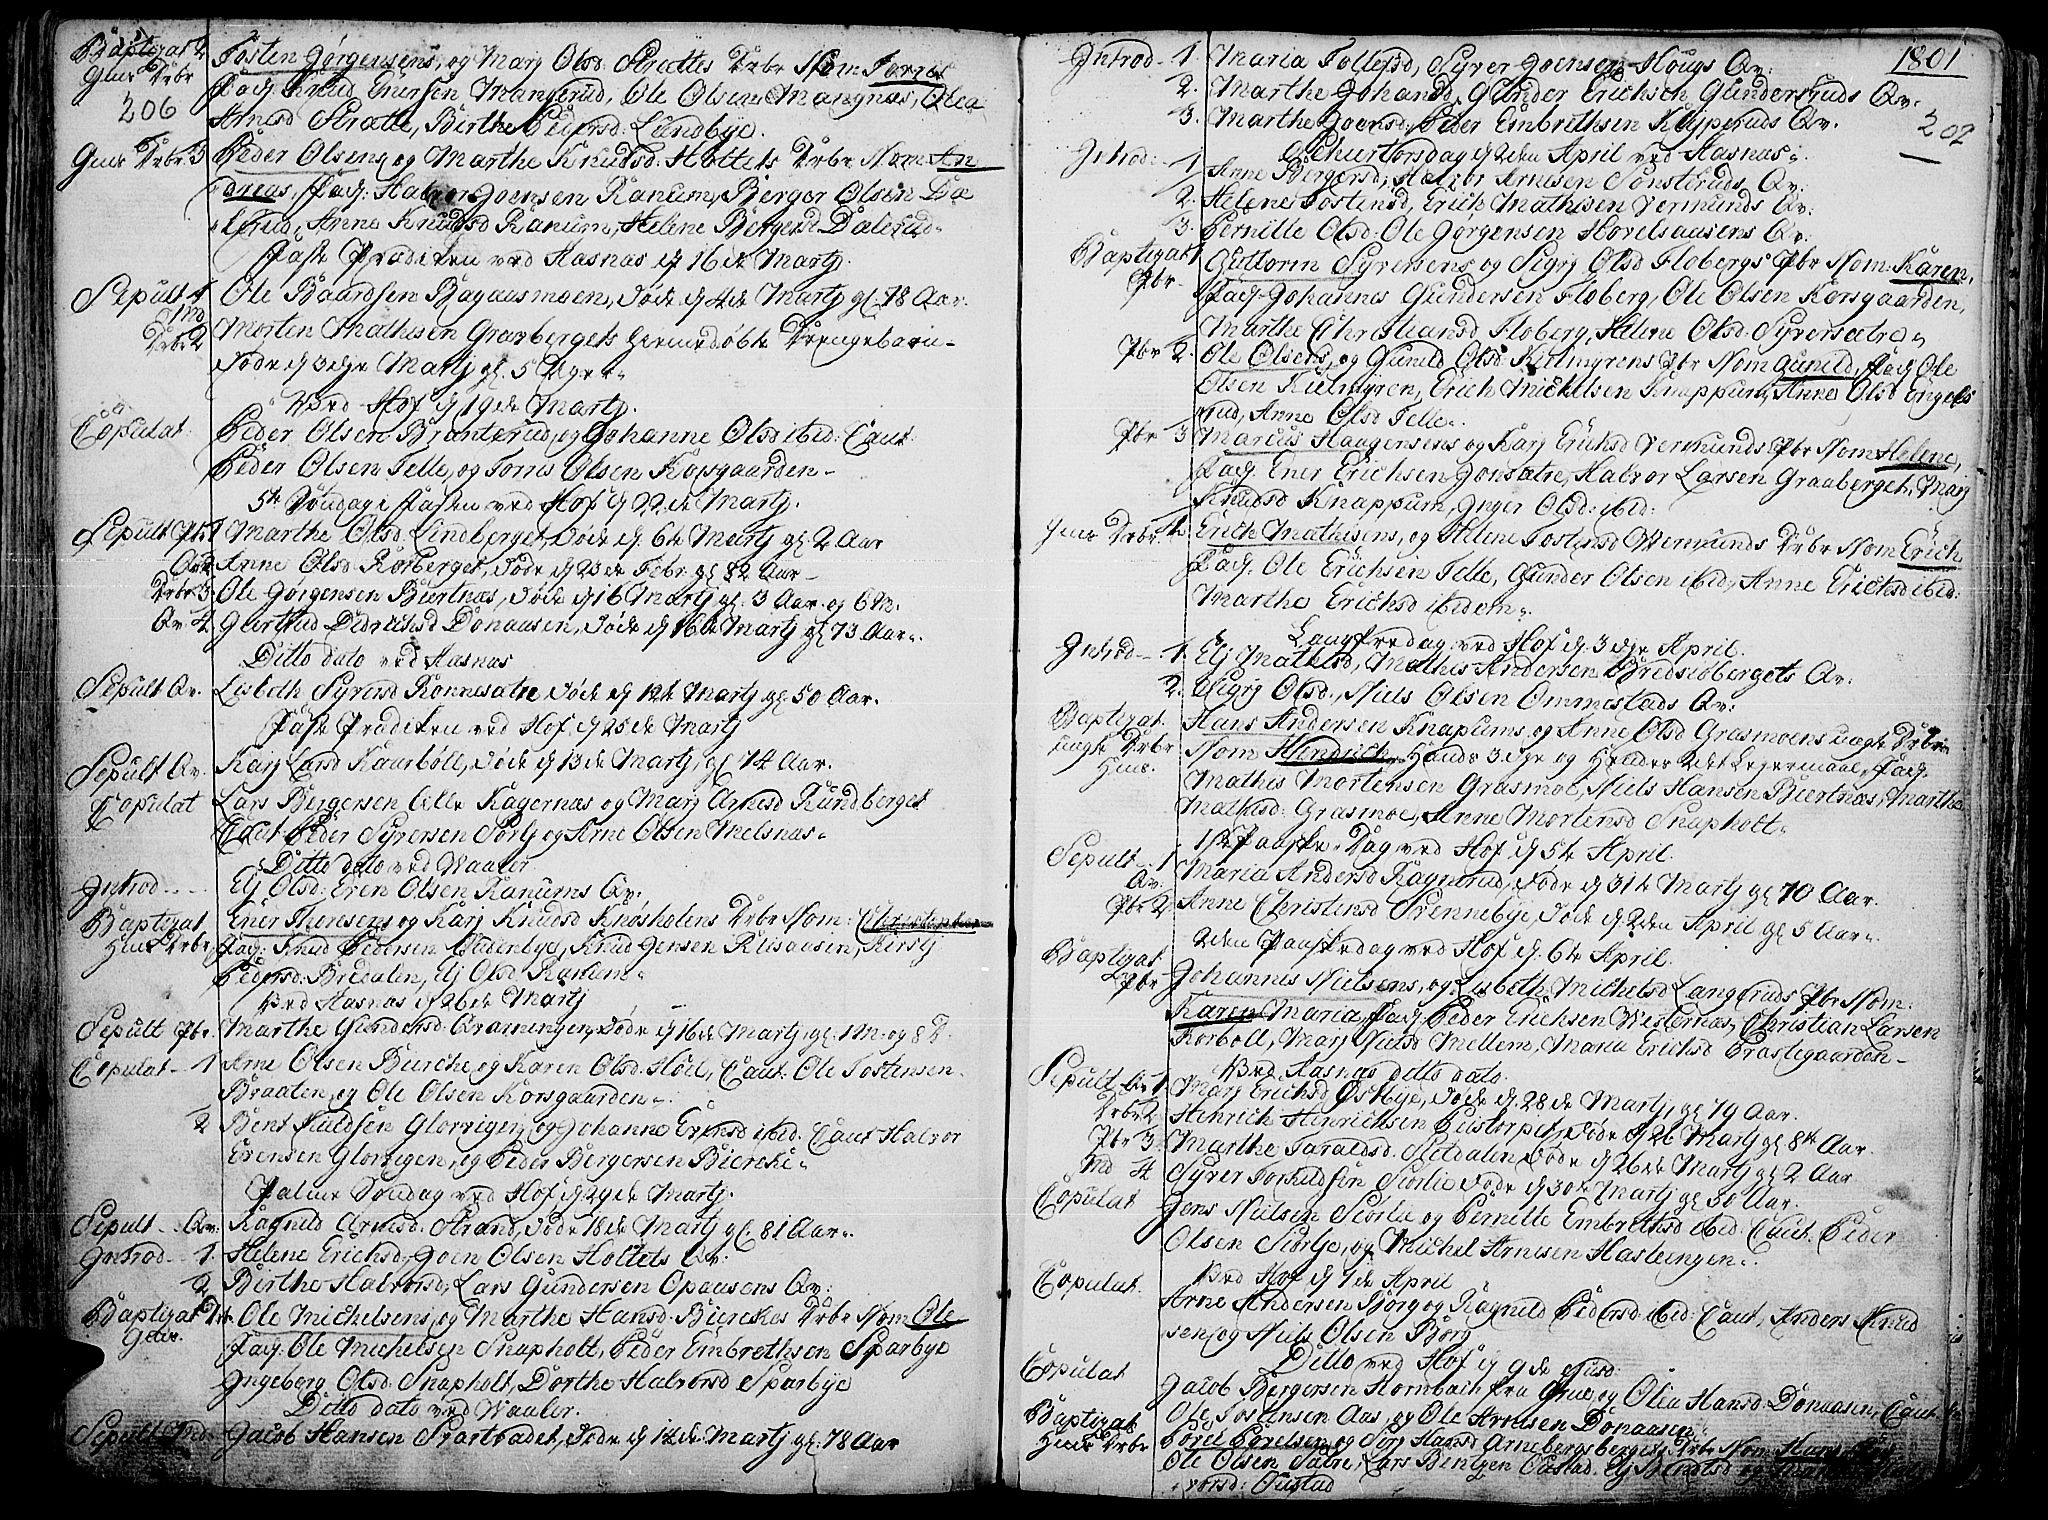 Baptizat 2 Tosten Jørgensens, og Marj Olsd: Strættes Drbr Nom: Tørris
Giem Drbr Fadj: Knud Enersen Mangerud, Ole Olsen Mangnæs, Olea
206 Arnesd Strætte, Birthe Pedersd: Lundbye.
Giem Drbr. 3 Peder Olsens og Marthe Knudsd: Holtets Drbr Nom: An
dreas, Fadj: Halvor Joensen Ranum, Berger Olsen Da
lerud, Anne Knudsd Ranum, Helene Bergersd: Dalerud
Faste Prædiken ved Aasnæs d 16de Martj.
Sepult 1 Ole Baardsen Bagaasmoen, Døde d 4de Martj gl. 78 Aar.
Md
Drbr 2 Morten Mathisen Graabergets hiemedøbte Drengebarn
Døde d 3die Martj gl. 5 Uger.
Ved Hof d 19de Martj.
Copulat: Peder Olsen Branterud, og Johanne Olsd ibid: Caut:
Peder Olsen Telle, og Tørris Olsen Korsgaarden
5te Søndag i Fasten ved Hof d 22de Martj.
Sepult Pbr 1 Marthe Olsd Lindberget, Døde d. 6te Martj gl 2 Aar
Qv 2 Anne Olsd Rørberget, Døde d 23de Febr. gl 82 Aar
Drbr 3. Ole Jørgensen Biertnæs, Døde d 16 Martj gl. 3 Aar og 6 M.
Qv 4 Giertrud Didrichsd Donaasen, Døde d. 16de Martj gl 73 Aar.
Ditto dato ved Aasnæs
Sepult Qv. Lisbeth Syversd Rønnesætre Døde d 12te Martj gl 50 Aar.
Faste Prædiken ved Hof d 25de Martj
Sepult Qv. Karj Larsd Kaarbøll, Døde d 13de Martj gl 74 Aar.
Copulat Lars Bergersen Kagernæs og Marj Arnesd Rundberget
Caut Peder Syversen Sorlj og Arne Olsen Melsnæs
Ditto dato ved Waaler
Introd Elj Olsd: Even Olsen Ranums Qv:
Baptizat Ener Theresens og Karj Knudsd Knøsholens Drbr Nom: Christopher
Hiem Drbr, Fadj: Knud Pedersen Oldenbye, Knud Jensen Risaasen, Kirstj
Pedersd: Bredalen, Elj Olsd Ranum
Ved Aasnæs d 26de Martj
Sepult Pbr. Marthe Gundersd: Døde d 16de Martj gl. 1 M. og 8 D.
Copulat 1 Arne Olsen Bierche og Karen Olsd: Hoel, Caut: Ole Tostensen
Braaten, og Ole Olsen Korsgaarden
2 Bent Glorvigen, og Johanne Erensd ibid. Caut Halvor
Evensen Glorvigen, og Peder Bergersen Biercke
Palme Søndag ved Hof d 29de Martj.
Sepult Qv. Ragnild Arnesd: Strand, Døde 18de Martj gl. 81 Aar.
Introd 1. Helene Erichsd: Joen Olsen Holtets Qv:
2 Birthe Halvorsd, Lars Gundersen Opaasens Qv:
Baptizat Drbr. Ole Michelsens, og Marthe Hansd: Bierckes Drbr Nom: Ole
Giem. Fadj: Ole Michelsen Snapholt, Peder Embrethsen Sparbye
Ingeborg Olsd: Snapholt, Dorthe Halvorsd Sparbye
Ditto dato ved Waaler.
Sepult Md. Jacob Hansen Svartbadet, Døde d 14de Martj gl: 78 Aar
1801
202
Introd 1. Maria Tollefsd, Syver Joensen Hougs Qv:
2. Marthe Johansd, Gunder Erichsen Gundersruds Qv:
3. Marthe Joensd, Peder Embrethsen Kyperuds Qv.
Skiertorsdag d 2den April ved Aasnæs
Introd: 1. Anne Bergersd, Halvor Arnesen Sønsteruds Qv:
2. Helene Tostensd, Erich Mathisen Vermunds Qv:
3. Pernille Olsd: Ole Jørgensen Hovelsaasens Qv:
Baptizat 1 Guttorm Syversens og Sigrj Olsd Flobergs Pbr Nom: Karen,
Pbr Fadj: Johannes Gundersen Floberg, Ole Olsen Korsgaarden,
Marthe Christiansd Floberg, Helene Olsd: Syversætre
Pbr 2. Ole Olsens, og Gunild Olsd: Kielmyrens Pbr Nom Gunild, Fadj Ole
Olsen Kielmyren, Erich Michelsen Knappum, Anne Olsd Engels
rud, Anne Olsd Telle.
Pbr 3 Marcus Haagensens og Karj Erichsd Vermunds Pbr Nom: Helene,
Fadj Ener Erichsen Jonsætre, Halvor Larsen Graaberget, Marj
Knudsd Knappum, Inger Olsd: ibid:
Giem Drbr. 4 Erich Mathisens, og Helene Tostensd Wermunds Drbr Nom Erich
Fadj: Ole Erichsen Telle, Gunder Olsen ibid, Anne Erichsd ibid:
Marthe Erichsd ibidem.
Langfredag ved Hof d. 3die April.
Introd 1. Elj Mathisd, Mathis Andersen Bredsiøbergets Qv:
2. Sigrj Olsd, Niels Olsen Ommestads Qv:
Baptizat Hans Andersen Knapums og Anne Olsd Grasmoens uægte Drbr
uægte Drbr Nom Hendrich. Hands 3die og Hendes 2det Legermaal, Fadj.
Hiem. Mathis Mortensen Grasmoe, Niels Hansen Biertnæs, Marthe
Mathisd: Grasmoe, Anne Mortensd Snapholt
1ste Paaske Dag ved Hof d 5te April.
Sepult 1 Maria Andersd Døde d 31te Martj gl 70 Aar.
Qv.
Pbr 2 Anne Christensd Svennebye, Døde d 2den April gl 5 Aar.
2den Paaskedag ved Hof d. 6te April.
Baptizat Johannes Nielsens, og Lisbeth Michelsd Langeruds Pbr Nom:
Pbr Karen Maria, Fadj: Peder Erichsen Westernæs, Christian Larsen
Korboll, Marj Nielsd Mellem, Maria Erichsd Præstegaarden
Ved Aasnæs ditto dato.
Sepult Qv 1. Marj Erichsd Østbye, Døde d. 28de Martj, gl 79 Aar.
Drbr 2. Hinrich Hinrichsen Peistorpet, Døde d 26 Martj gl 8te Aar.
Pbr 3. Marthe Taraldsd: Sletdalen Døde d 26de Martj gl 2 Aar
Md 4 Syver Torkildsen Siorlie Døde d 30te Martj gl 30 Aar.
Copulat Jens Nielsen Siorlie og Pernille Embrethsd ibid: Caut. Peder
Olsen Siorlje, og Michel Arnesen Haslingen.
Ved Hof d 7de April
Copulat. Arne Andersen Biørg og Ragnild Pedersd: ibid: Caut, Anders Knud
sen, og Niels Olsen Biørg
Ditto ved Hof d 9de ejusd:
Copulat Jacob Bergersen Hornbach fra Grue, og Olia Hansd: Donaasen, Caut
Ole Tostensen Aas, og Ole Arnesen Donaasen
Baptizat Poul Poulsen, og Siri Hansd Arnebergsbergets Drbr Nom: Hans
Hiem Drbr Ole Olsen Sætre, Lars Bentzen Opstad. Elj Bendtsd og
vorsd: Opstad